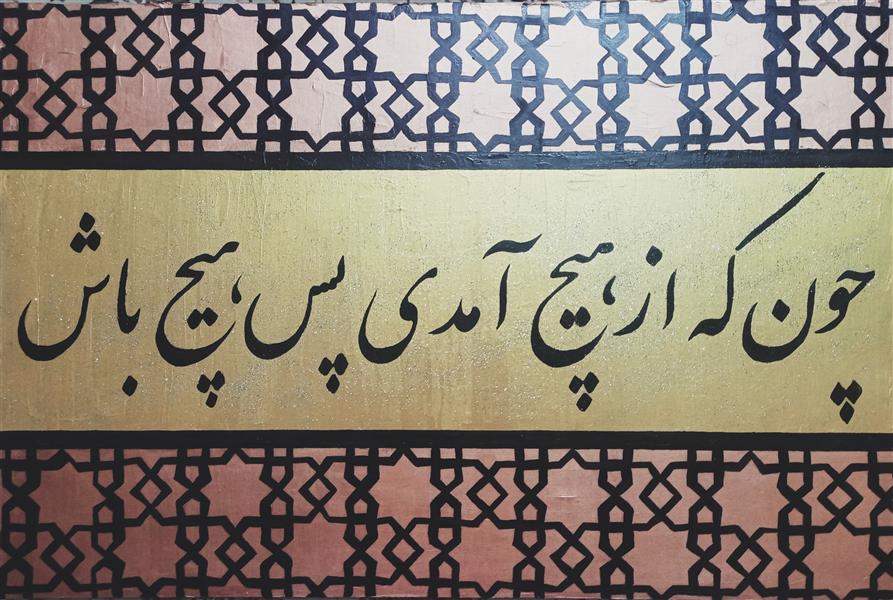 چون که از هیچ آمدی پس هیچ باش